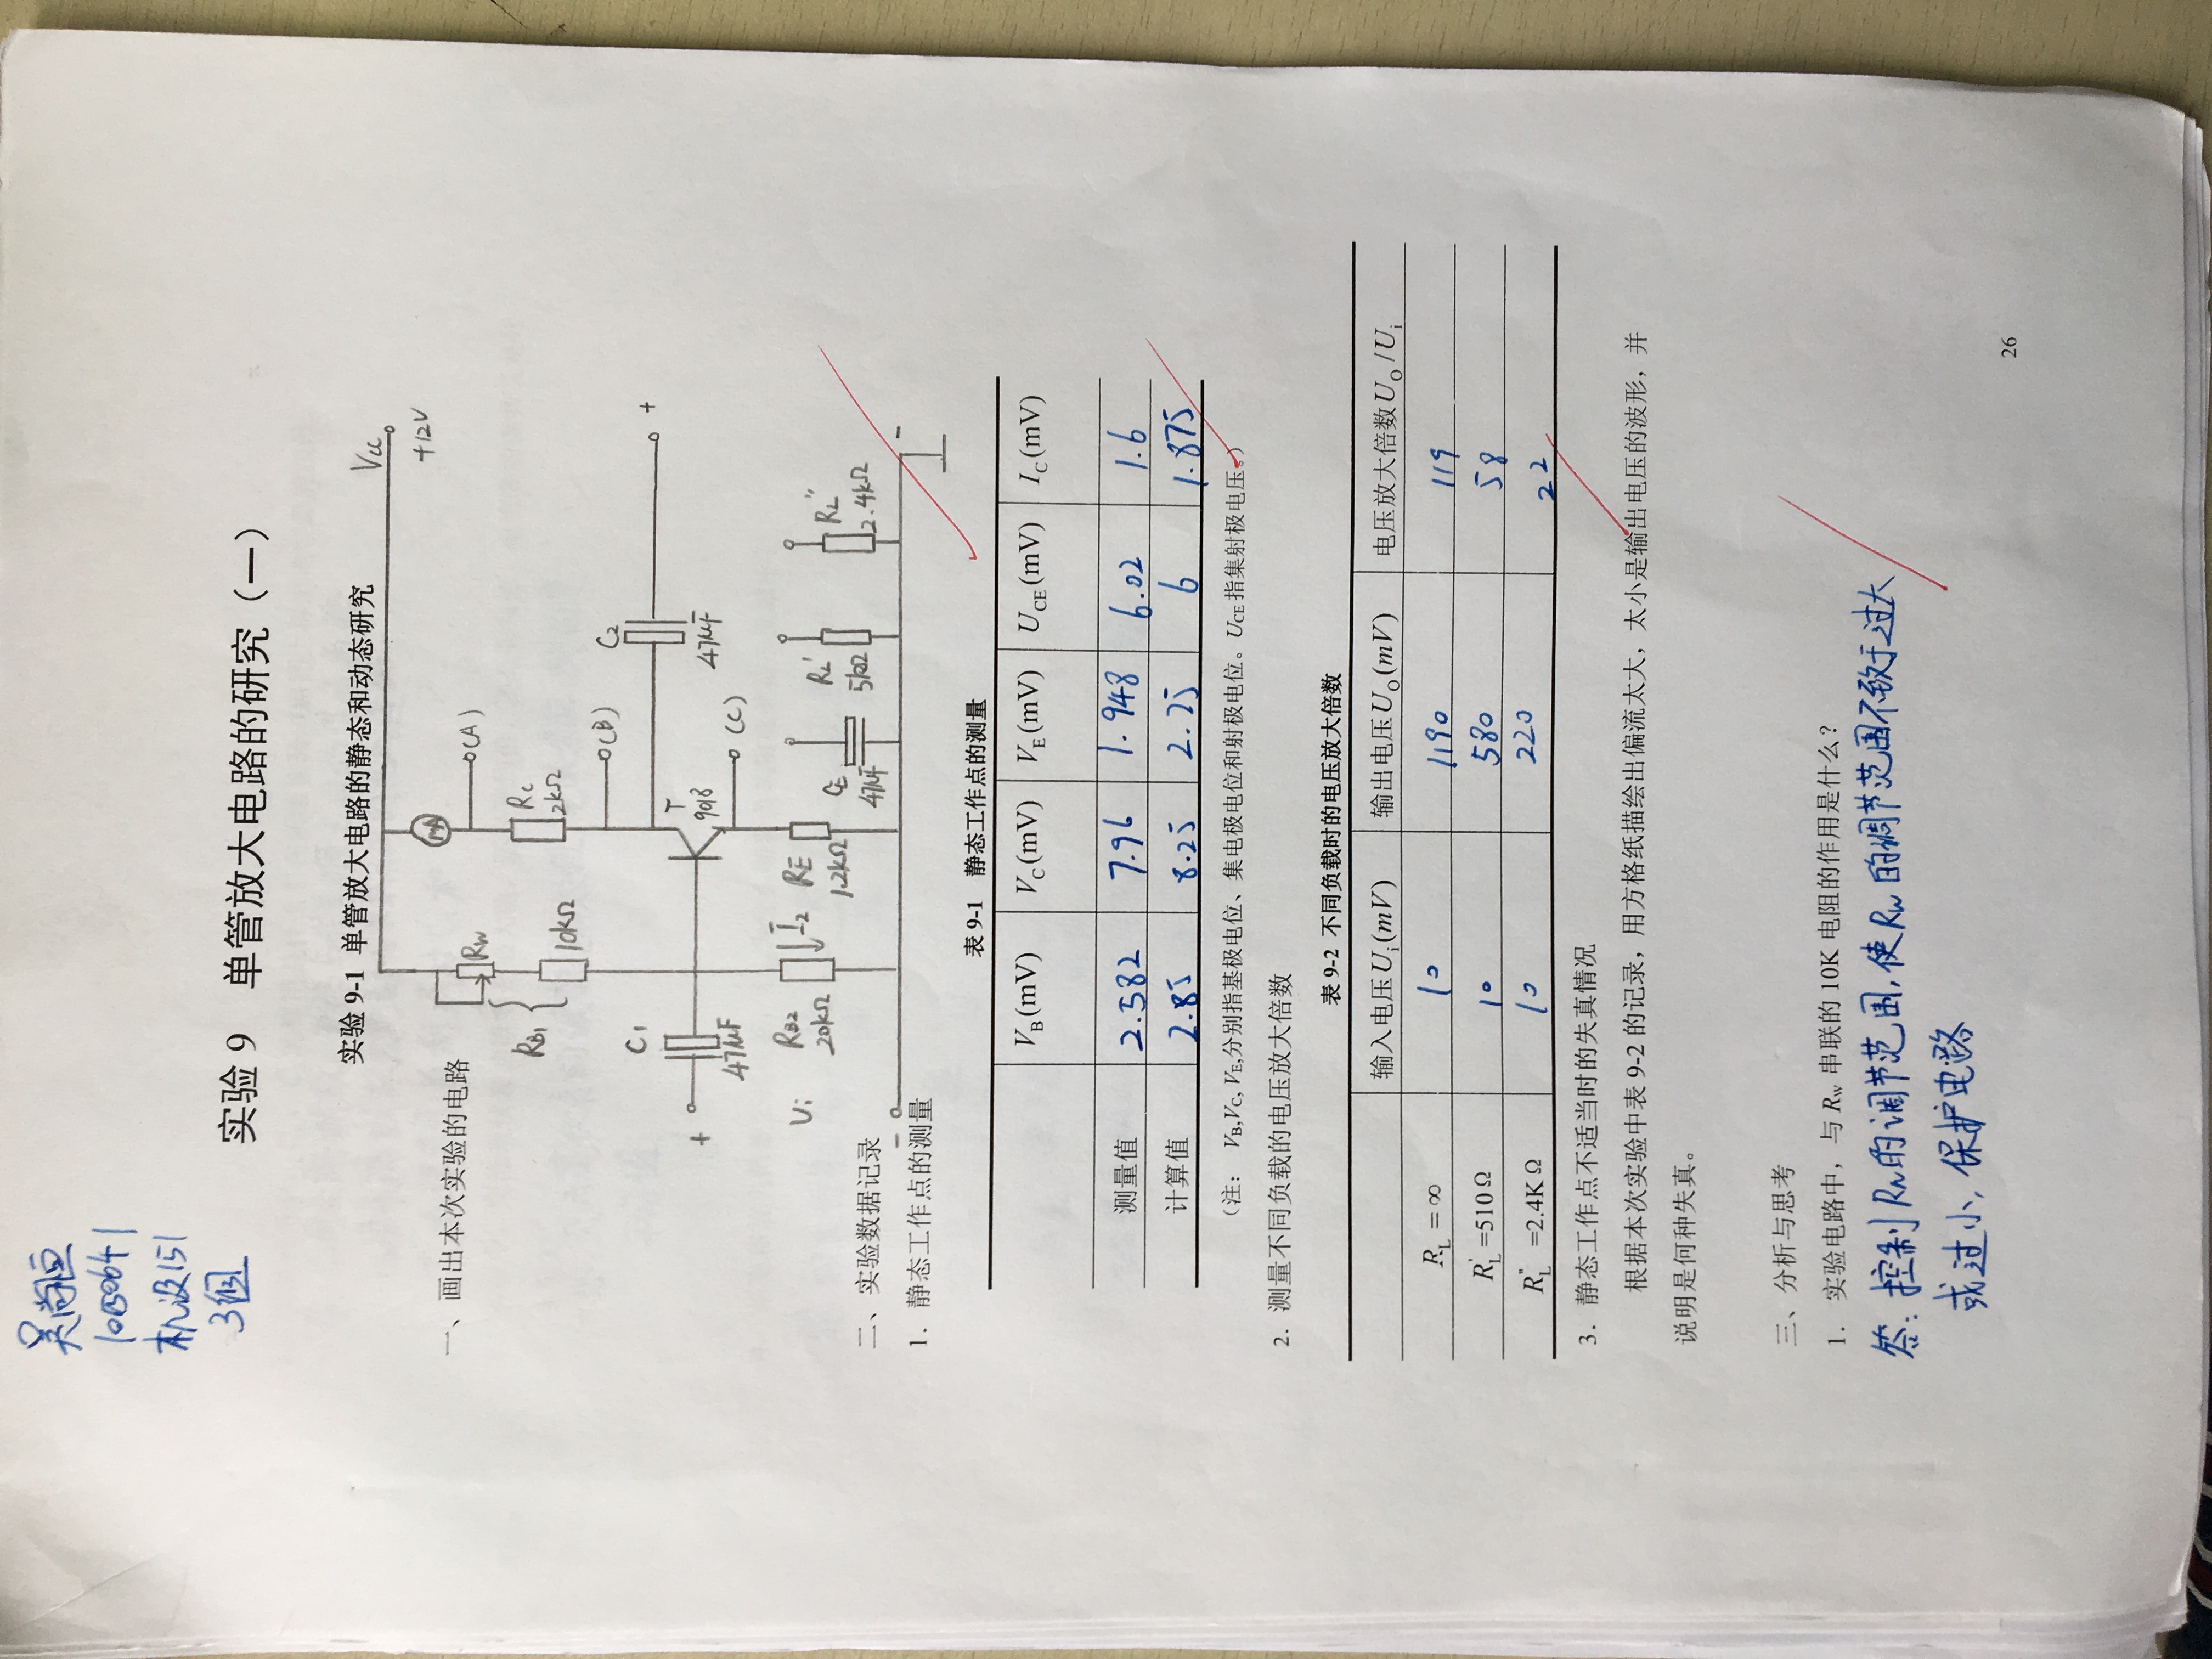 吴尚恒
10150641
机设151
3组
实验 9 单管放大电路的研究（一）
实验 9-1 单管放大电路的静态和动态研究
Vcc
+12V
mA
一、画出本次实验的电路
(A)
Rw
RB1
Rc
2kΩ
10kΩ
(B)
C2
C1
+
T
9018
+
47μF
47μF
(C)
Ui
RB2
20kΩ
I2
RE
1.2kΩ
CE
47μF
RL'
RL''
2.4kΩ
二、实验数据记录
-
-
1. 静态工作点的测量
表 9-1 静态工作点的测量
VB(mV) VC(mV) VE(mV) UCE(mV) IC(mV)
测量值 2.582 7.96 1.948 6.02 1.6
计算值 2.85 8.25 2.25 6 1.875
（注： VB,VC, VE,分别指基极电位、集电极电位和射极电位。UCE 指集射极电压。）
2. 测量不同负载的电压放大倍数
表 9-2 不同负载时的电压放大倍数
输入电压Ui(mV) 输出电压UO(mV) 电压放大倍数UO/Ui
RL=∞ 10 1190 119
RL'=510Ω 10 580 58
RL"=2.4KΩ 10 220 22
3. 静态工作点不适当时的失真情况
根据本次实验中表 9-2 的记录，用方格纸描绘出偏流太大，太小是输出电压的波形，并
说明是何种失真。
三、分析与思考
1. 实验电路中，与 Rw 串联的 10K 电阻的作用是什么？
答：控制Rw的调节范围，使Rw的调节范围不致于过大
或过小，保护电路
26